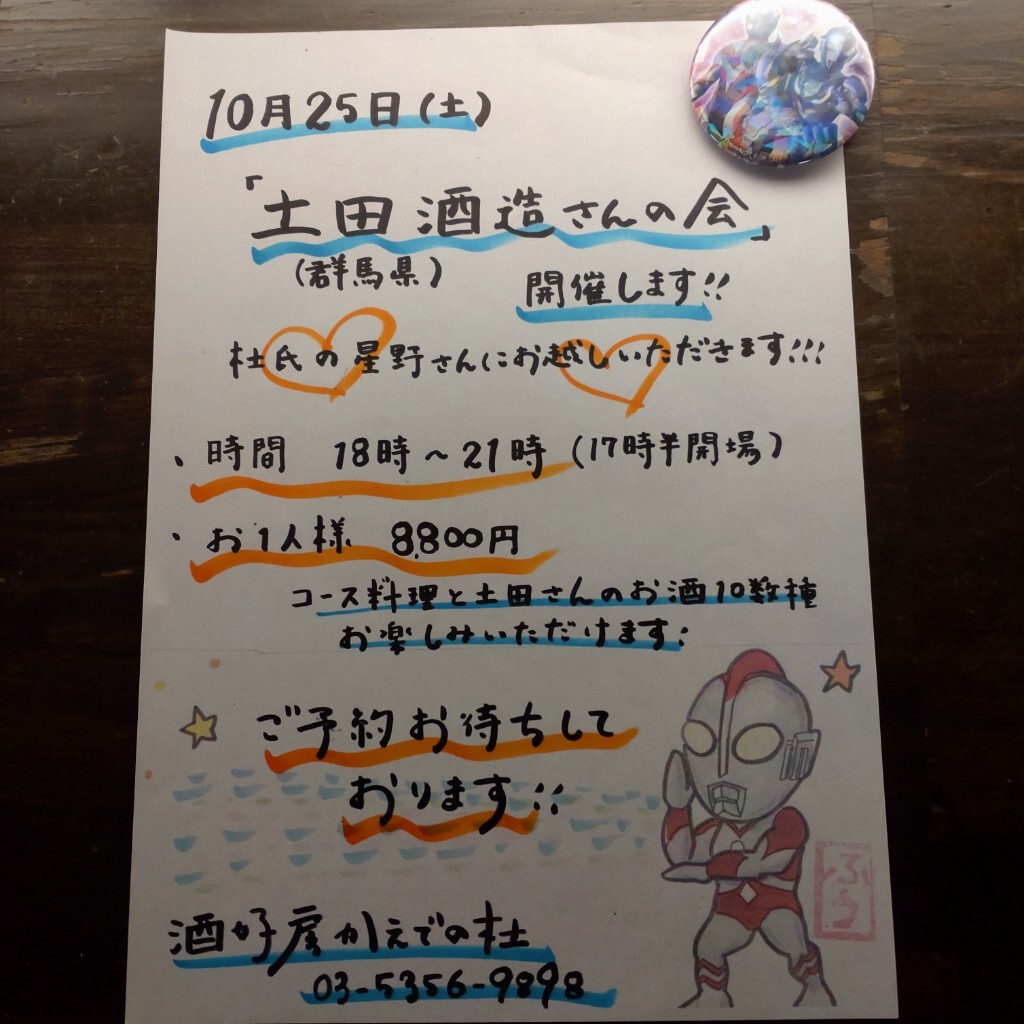 10月25日(土)
「土田酒造さんの会」
(群馬県)
開催します!!
杜氏の星野さんにお越しいただきます!!!
・時間 18時~21時 (17時半開場)
・お1人様 8,800円
コース料理と土田さんのお酒10数種
お楽しみいただけます!
ご予約お待ちして
おります!!
酒好房かえでの杜
03-5356-9898